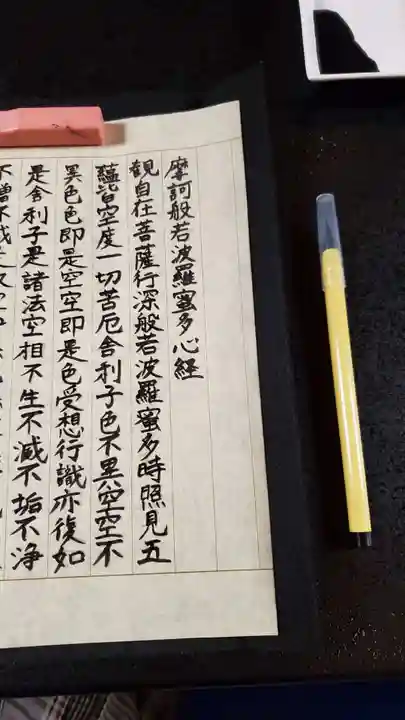 摩訶般若波羅蜜多心経
観自在菩薩行深般若波羅蜜多時照見五
蘊皆空度一切苦厄舎利子色不異空空不
異色色即是空空即是色受想行識亦復如
是舎利子是諸法空相不生不滅不垢不浄
不増不減是故空中